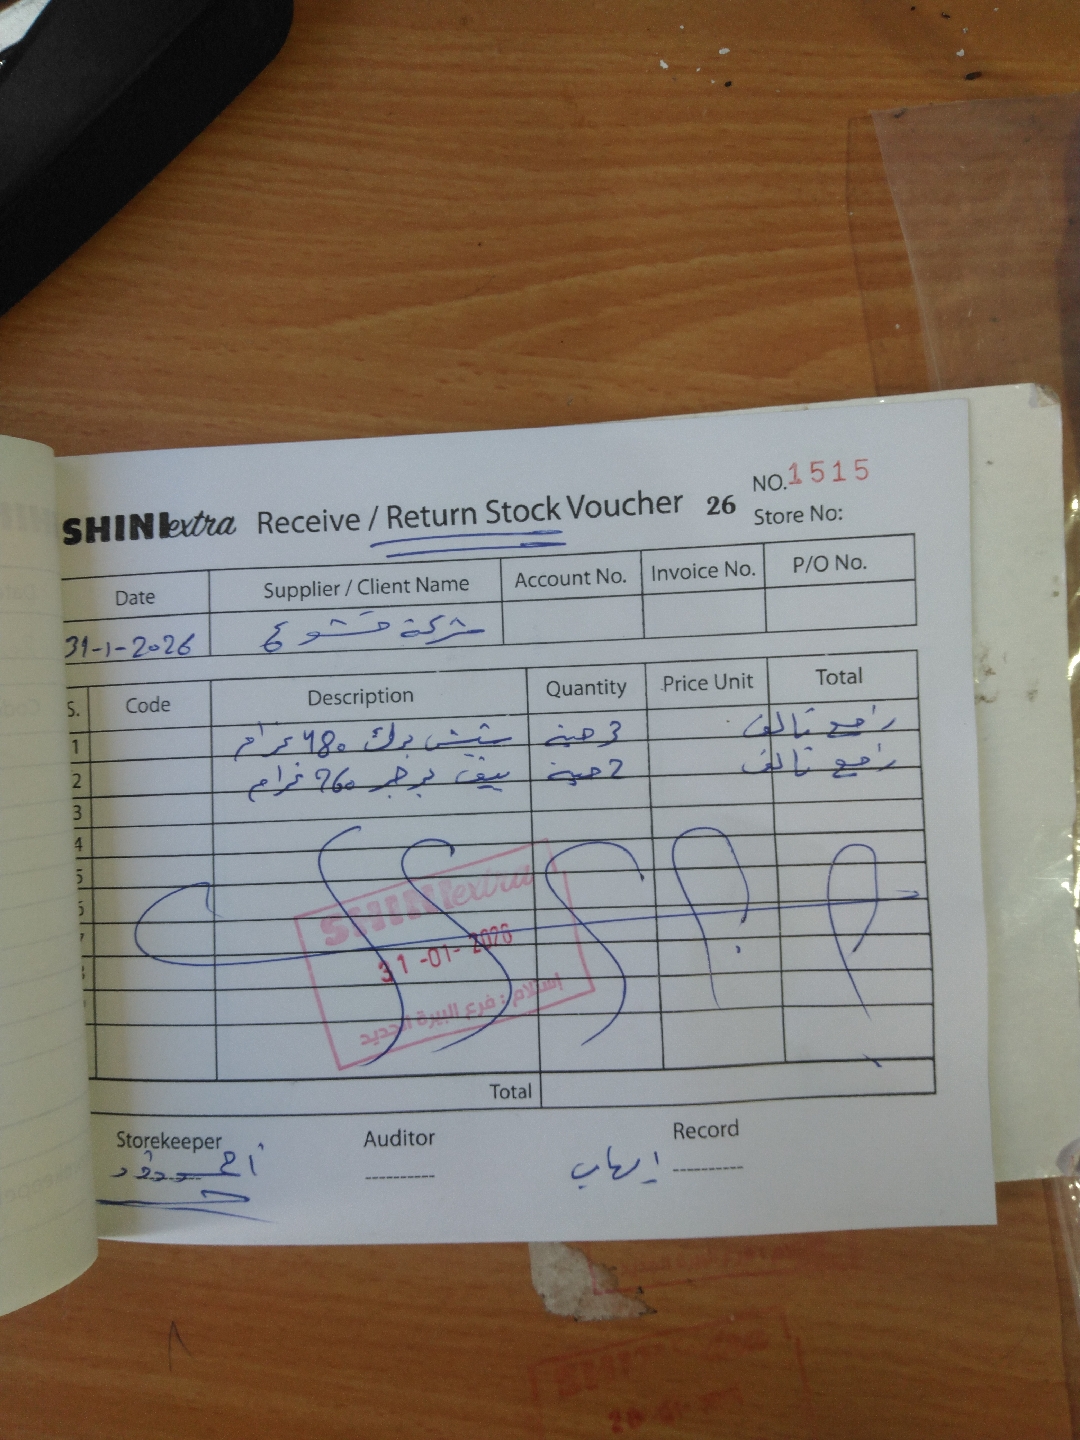 NO. 1515
SHINI extra Receive / Return Stock Voucher 26
Store No:
Date Supplier / Client Name Account No. Invoice No. P/O No.
31-1-2026 شركة قشوع
S. Code Description Quantity Price Unit Total
1 ششبرك 480 غرام 3 حبة راجع تالف
2 بيف برجر 760 غرام 2 حبة راجع تالف
3
4
5
6
7
SHINI extra
31-01-2026
إستلام : فرع البيرة الجديد
Total
Storekeeper Auditor Record
إيهاب